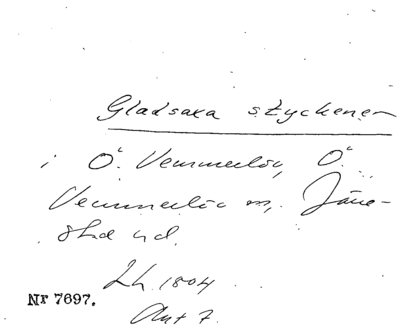 Gladsaxa styckener
i Ö. Vemmerlöv, Ö.
Vemmerlöv sn, Järre-
stad hd.
Lh. 1804
Akt 7.
Nr 7697.